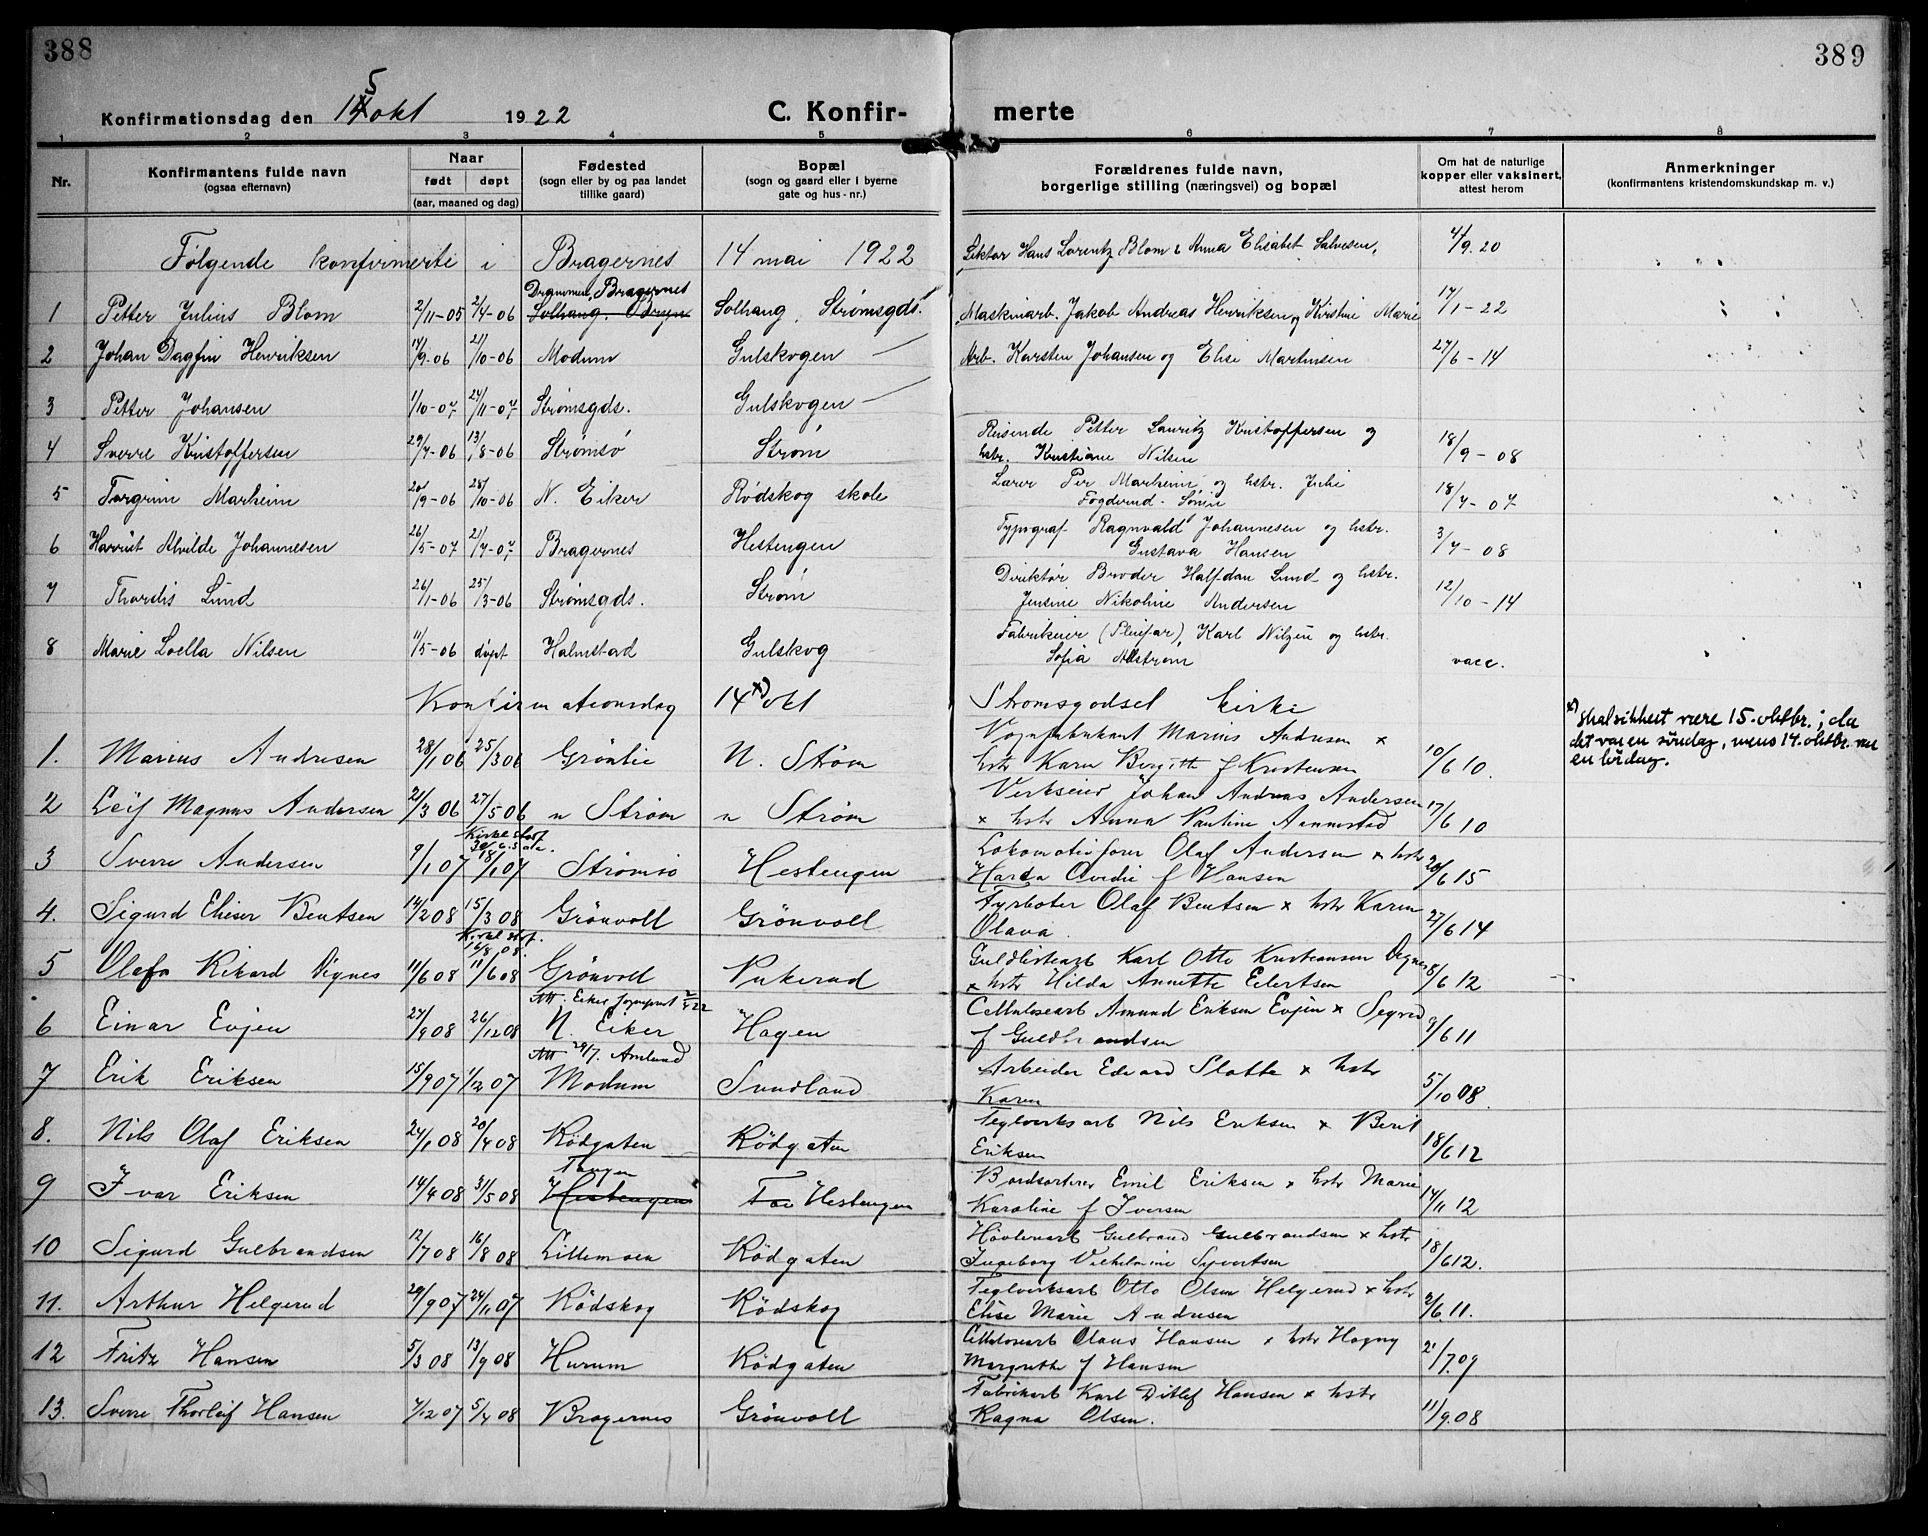 388
389
Konfirmationsdag den 15 okt 1922
C. Konfir-
merte
1 2 3 4 5 6 7 8
Nr.
Konfirmantens fulde navn
(ogsaa efternavn)
Naar
født døpt
(aar, maaned og dag)
Fødested
(sogn eller by og paa landet
tillike gaard)
Bopæl
(sogn og gaard eller i byerne
gate og hus-nr.)
Forældrenes fulde navn,
borgerlige stilling (næringsvei) og bopæl
Om hat de naturlige
kopper eller vaksinert,
attest herom
Anmerkninger
(konfirmantens kristendomskundskap m. v.)
Følgende konfirmerte i Bragernes 14 mai 1922
Lektor Hans Lorentz Blom & Anna Elisabet Salvesen, 4/9.20
Drammen, Bragernes
1 Petter Julius Blom 2/11-05 2/4-06 Solhang, Strømsgds. Maskinarb. Jakob Andreas Henriksen og Kirstine Marie 17/1-22
2 Johan Dagfin Henriksen 14/9-06 21/10-06 Modum Gulskogen Arb. Karsten Johansen og Elise Martinsen 27/6-14
3 Petter Johansen 1/10-07 24/11-07 Strømsgds. Gulskogen
Reisende Petter Lauritz Kristoffersen og
4 Sverre Kristoffersen 29/7-06 13/8-06 Strømsø Strøm hstr. Kristiane Nilsen 18/9-08
Lærer Per Marheim og hstr. Julie
5 Torgrim Marheim 20/9-06 28/10-06 N. Eiker Rødskog skole Fogderud 18/7-07
Typograf Ragnvald Johannesen og hstr.
6 Harriet Alvilde Johannesen 26/5-07 21/7-07 Bragernes Hestengen Gustava Hansen 3/7-08
Direktør Broder Halfdan Lund og hstr.
7 Thordis Lund 26/1-06 25/3-06 Strømsgds. Strøm Jensine Nikoline Andersen 12/10-14
Fabrikeier Karl Nilzén og hstr.
8 Marie Loella Nilsen 11/5-06 døpt Halmstad Gulskog Sofia Alstrøm vacc.
Konfirmationsdag 14 x) okt Strømsgodset kirke
x) skal sikkert være 15. oktbr.; da
det var en søndag, mens 14. oktbr. var
en lørdag.
Vognfabrikant Marius Andersen x
1. Marius Andersen 28/1 06 25/3 06 Grønlie N. Strøm hstr Karen Bergitte f Kristensen 10/6 10.
Verkseier Johan Andreas Andersen
2 Leif Magnus Andersen 21/3 06 27/5 06 n Strøm n Strøm x hstr Anna Pauline Aannestad 17/6 10
Lokomotivfører Olaf Andersen x hstr
3 Sverre Andersen 9/1 07 18/1 07 Strømsø Hestengen Harda Ovedie f Hansen 20/6 15
Fyrbøter Olaf Bentsen x hstr Karen
4. Sigurd Elieser Bentsen 14/2 08 15/3 08 Grönvoll Grönvoll Olava. 27/6 14
16/8 08.
Guldlistearb Karl Otto Kristiansen Dignes
5 Olaf Rikard Dignes 11/6 08 11/6 08 Grönvoll Pukerud x hstr Hilda Annette Eilertsen 5/6 12
Att. Eiker
Celluloseart Amund Eriksen Evjen x Sigrid
6 Einar Evjen 27/9 08 26/12 08 N. Eiker Hagen f Guldbrandsen 9/6 11
Att 29/7. Amlund
Arbeider Edvard Slatta x hstr
7 Erik Eriksen 15/9 07 1/12 07 Modum Sundland Karen 5/10 08.
Teglverksarb Nils Eriksen x Berit
8. Nils Olaf Eriksen 24/1 08 20/4 08 Rödgaten Rödgaten Eriksen 18/6 12
Tangen
Bordsorterer Emil Eriksen x hstr Marie
9 Ivar Eriksen 14/4 08 31/5 08 Hestengen Hestengen Karoline f Iversen 14/11 12
Høvlerarb Gulbrand Gulbrandsen x hstr
10 Sigurd Gulbrandsen 12/7 08 16/8 08 Lillemoen Rödgaten Ingeborg Vilhelmine Syvertsen 18/6 12.
Teglverksarb Otto Olsen Helgerud x hstr
11. Arthur Helgerud 29/9 07 24/11 07 Rödskog Rödskog Elise Marie Andersen 2/6 11.
Celluloseart Olaus Hansen x hstr Hagny
12 Fritz Hansen 5/3 08 13/9 08 Hurum Rödgaten Margrethe f Hansen 2/7.09
Fabrikarb Karl Ditlef Hansen x hstr
13. Sverre Thorleif Hansen 7/12 07 5/4 08 Bragernes Grönvoll Ragna Olsen. 11/9.08